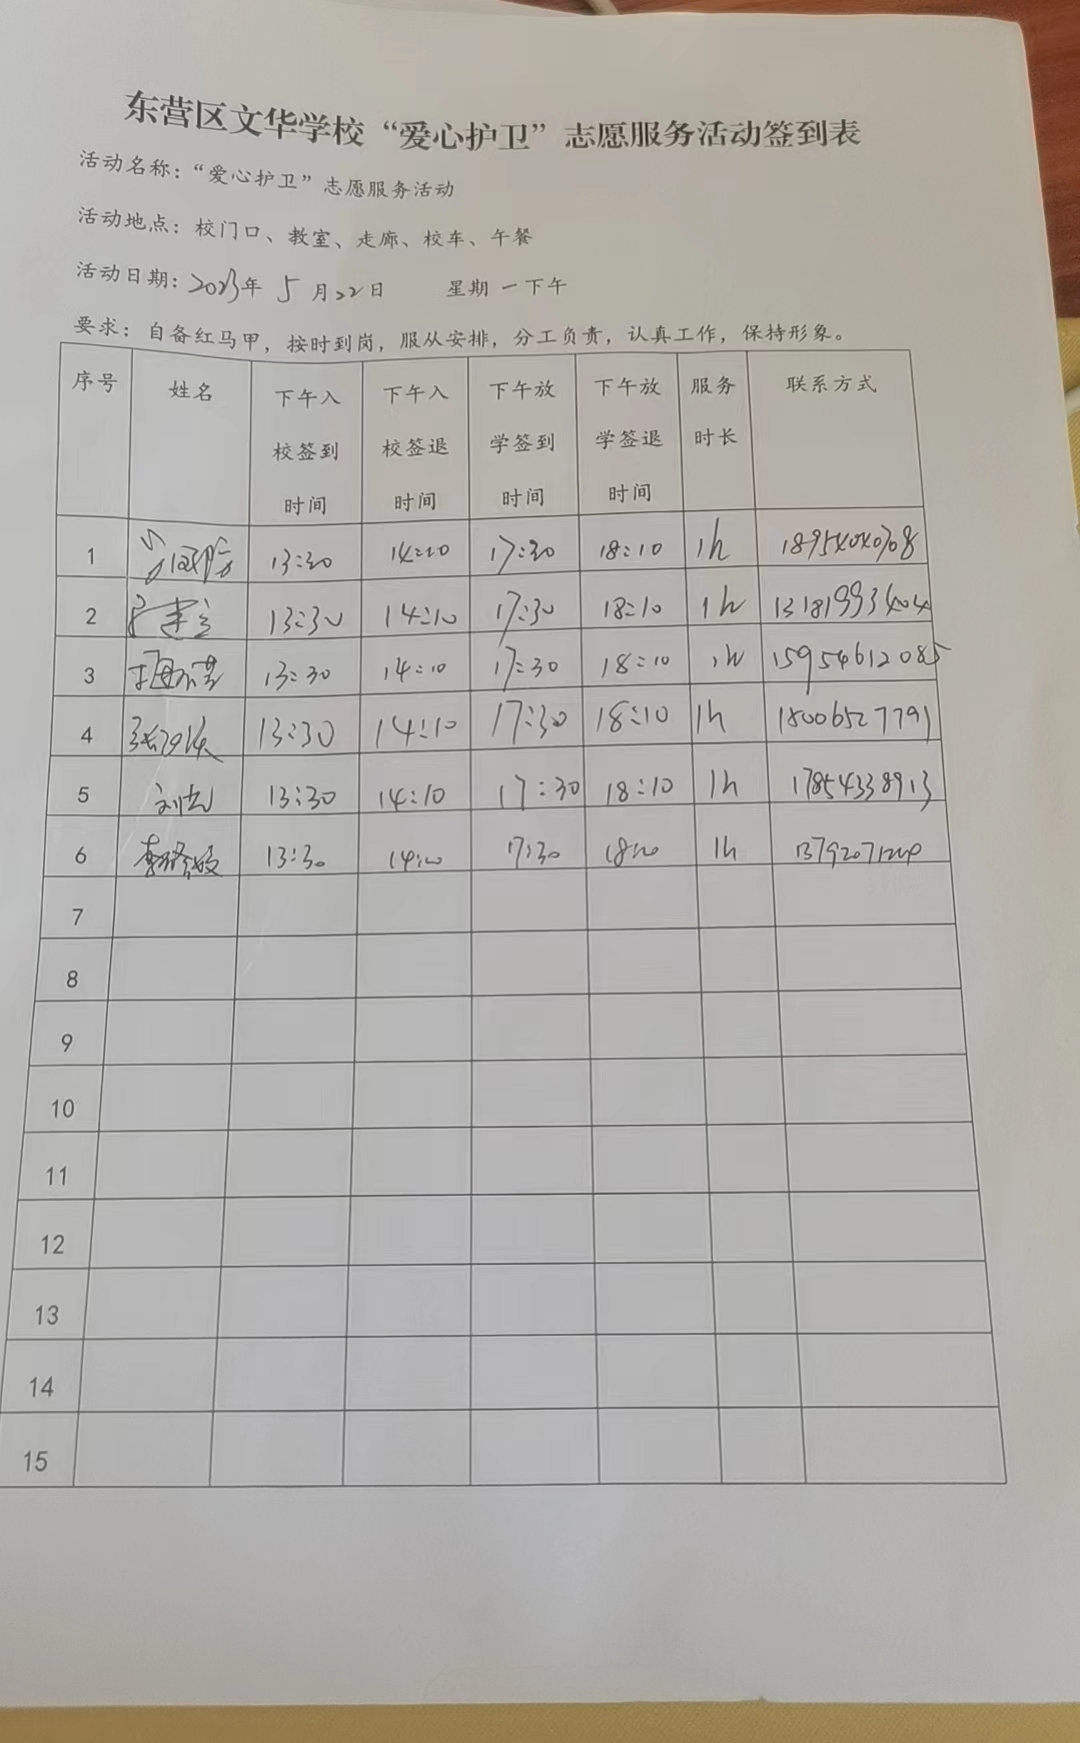 东营区文华学校“爱心护卫”志愿服务活动签到表
活动名称：“爱心护卫”志愿服务活动
活动地点：校门口、教室、走廊、校车、午餐
活动日期：2023年 5月22日 星期一下午
要求：自备红马甲，按时到岗，服从安排，分工负责，认真工作，保持形象。
序号 姓名 下午入校签到时间 下午入校签退时间 下午放学签到时间 下午放学签退时间 服务时长 联系方式
1 13:30 14:10 17:30 18:10 1h
2 13:30 14:10 17:30 18:10 1h 13181993404
3 13:30 14:10 17:30 18:10 1h 15954612085
4 13:30 14:10 17:30 18:10 1h 18006527791
5 13:30 14:10 17:30 18:10 1h 17854338913
6 13:30 14:10 17:30 18:10 1h
7
8
9
10
11
12
13
14
15